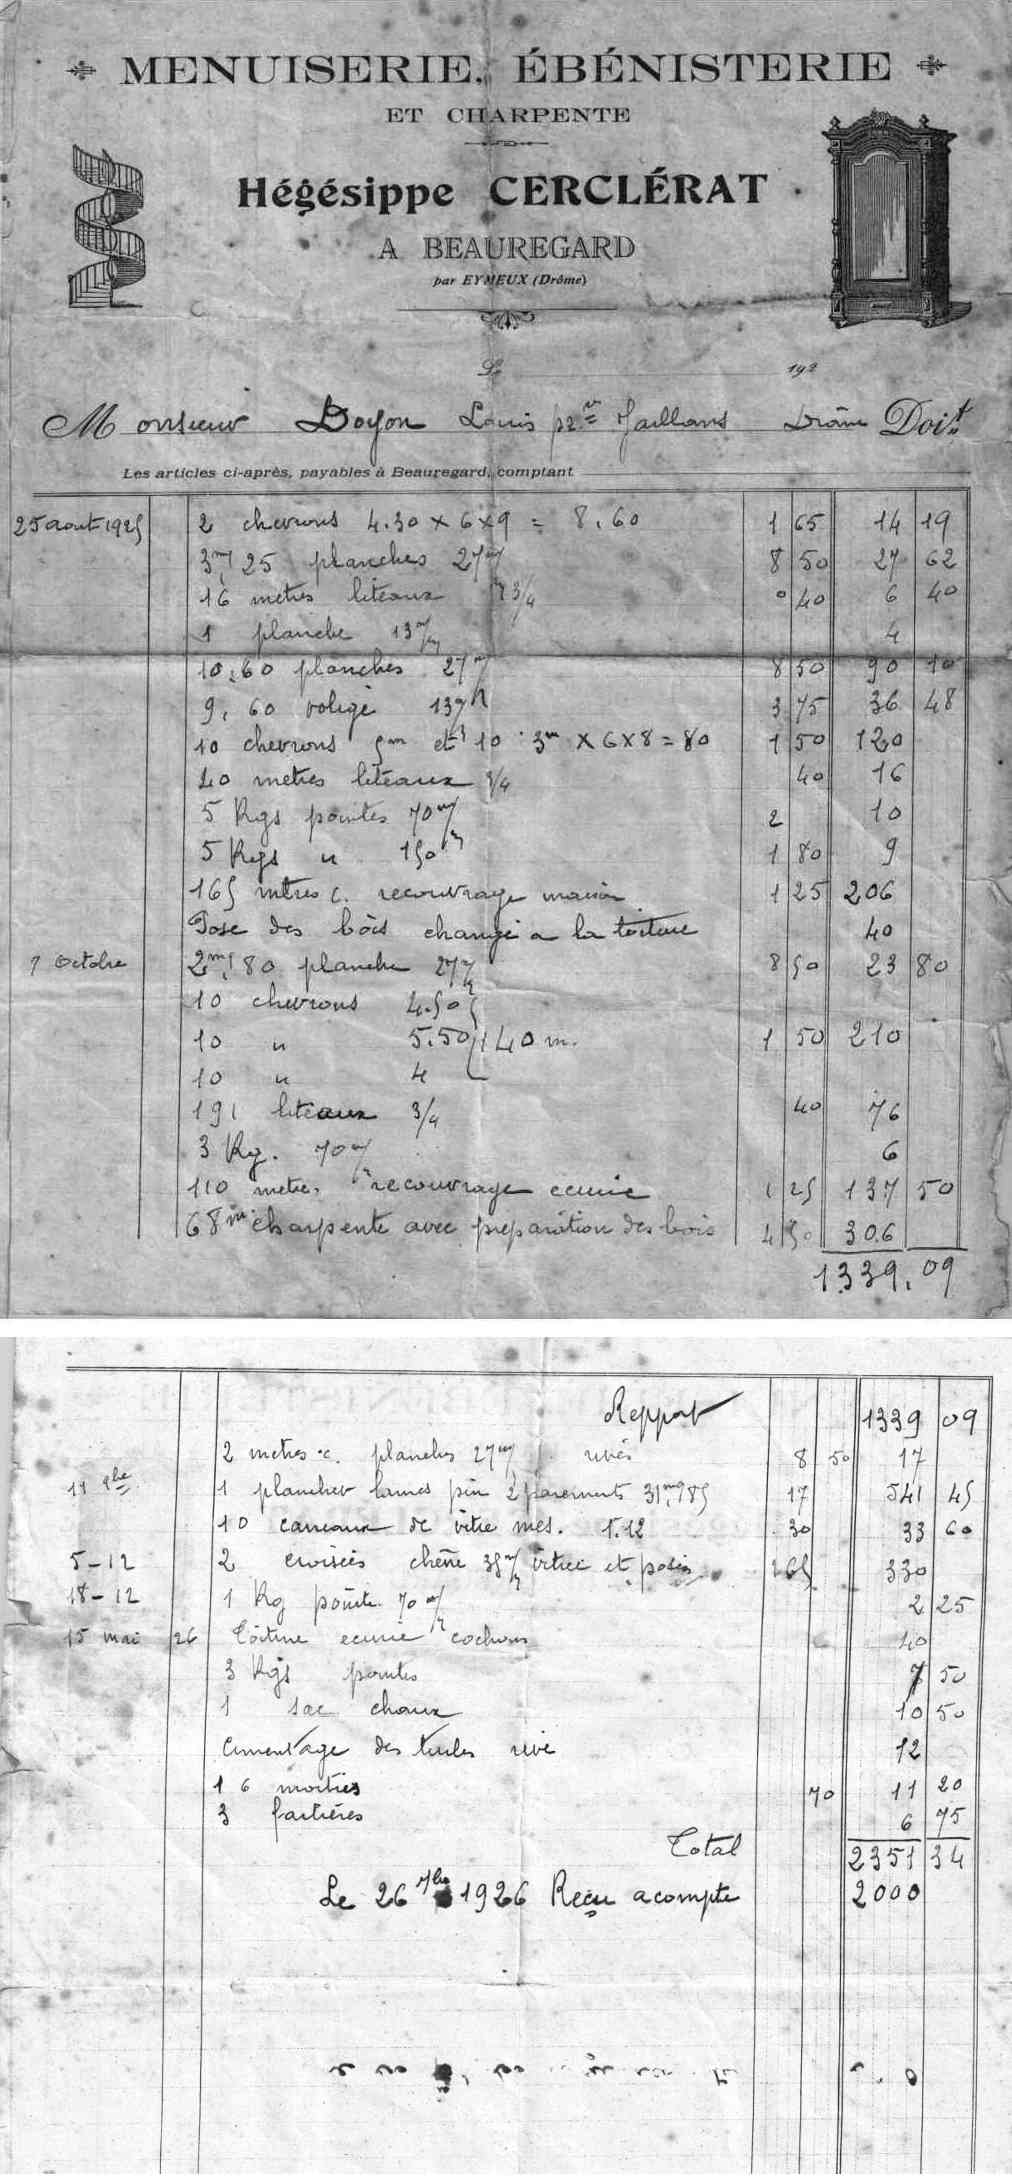 MENUISERIE, ÉBÉNISTERIE
ET CHARPENTE
Hégésippe CERCLÉRAT
A BEAUREGARD
par EYMEUX (Drôme)
Le 192
Monsieur Doyon Louis Jaillans Drôme Doit
Les articles ci-après, payables à Beauregard, comptant
25 aout 1925 2 chevrons 4.30 x 6 x 9 = 8.60 1 65 14 19
3m 25 planches 27m/m 8 50 27 62
16 metres liteaux 3/4 0 40 6 40
1 planche 13m/m 4
10,60 planches 27m/m 8 50 90 10
9,60 volige 13m/m 3 75 36 48
10 chevrons 5m et 10 3m x 6 x 8 = 80 1 50 120
40 metres liteaux 3/4 40 16
5 Kgs pointes 70m/m 2 10
5 Kgs " 150 1 80 9
165 mtres c. recouvrage maison 1 25 206
Pose des bois changé a la toiture 40
7 Octobre 2m 80 planche 27m/m 8 50 23 80
10 chevrons 4.50
10 " 5.50 140 m. 1 50 210
10 " 4
191 liteaux 3/4 40 76
3 Kg. 70m/m 6
110 metre. recouvrage ecurie 1 25 137 50
68m charpente avec preparation des bois 4 50 306
1339,09
Repport 1339 09
2 metres c. planches 27m/m rivés 8 50 17
11 9bre 1 plancher lames pin 2 parements 31m,85 17 541 45
10 carreaux de vitre mes. 1.12 30 33 60
5-12 2 croisées chêne 35m/m vitrée et posées 165 330
18-12 1 Kg pointe 70m/m 2 25
15 mai 26 Toiture ecurie cochons 40
3 Kgs pointes 7 50
1 sac chaux 10 50
Cimentage des tuiles rive 12
16 moitiés 70 11 20
3 faitières 6 75
Total 2351 34
Le 26 7bre 1926 Reçu acompte 2000